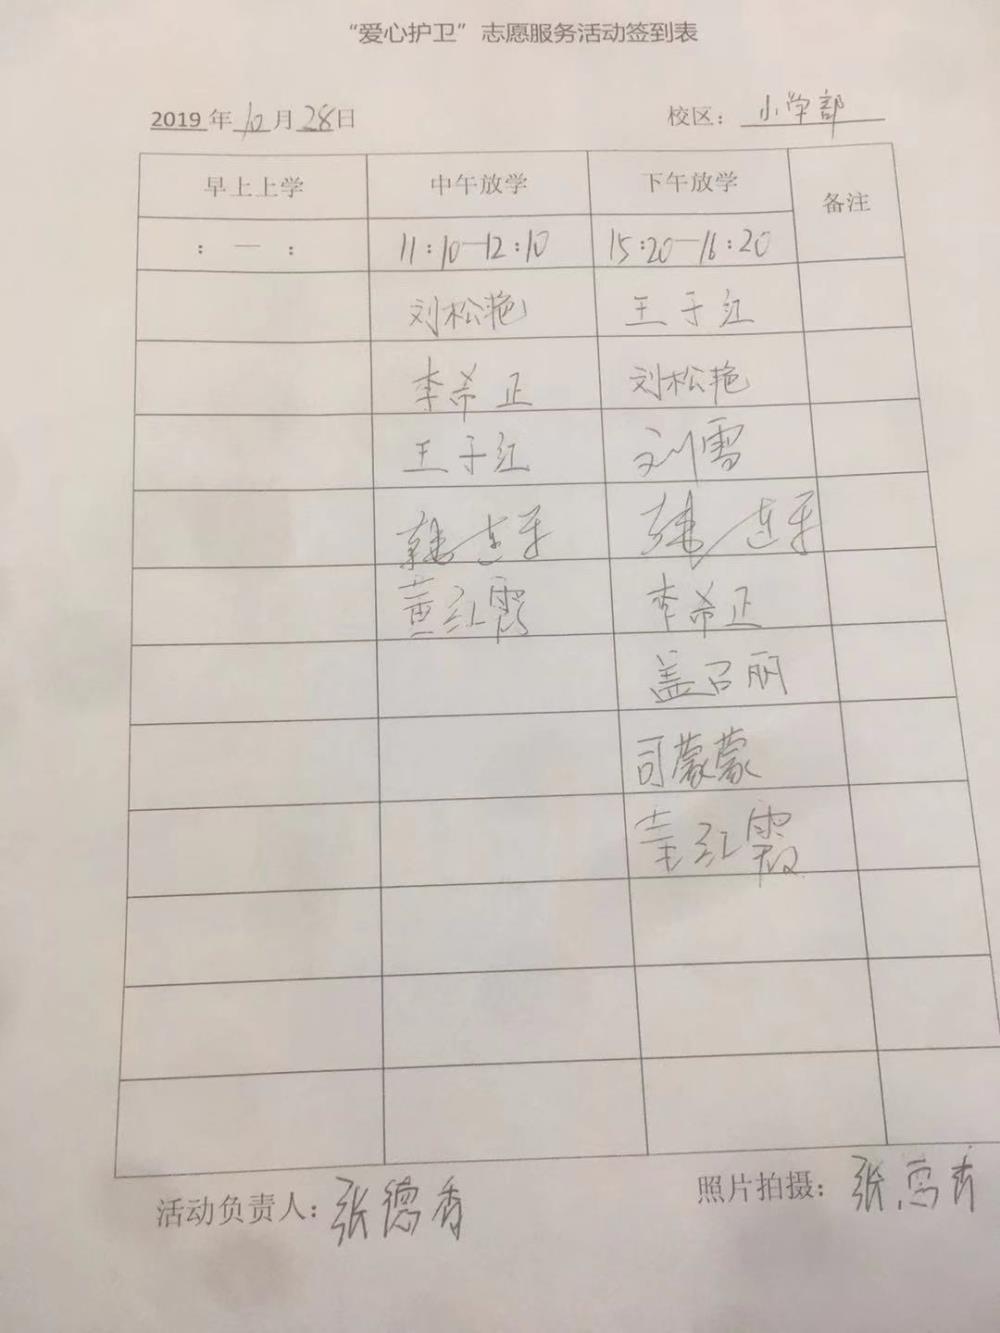 “爱心护卫”志愿服务活动签到表
2019年10月28日 校区：小学部
早上上学 中午放学 下午放学 备注
：—： 11:10—12:10 15:20—16:20
刘松艳 王于红
李希正 刘松艳
王于红 刘雪
韩连平 韩连平
黄红霞 李希正
盖召丽
司蒙蒙
黄红霞
活动负责人：张德香 照片拍摄：张德香